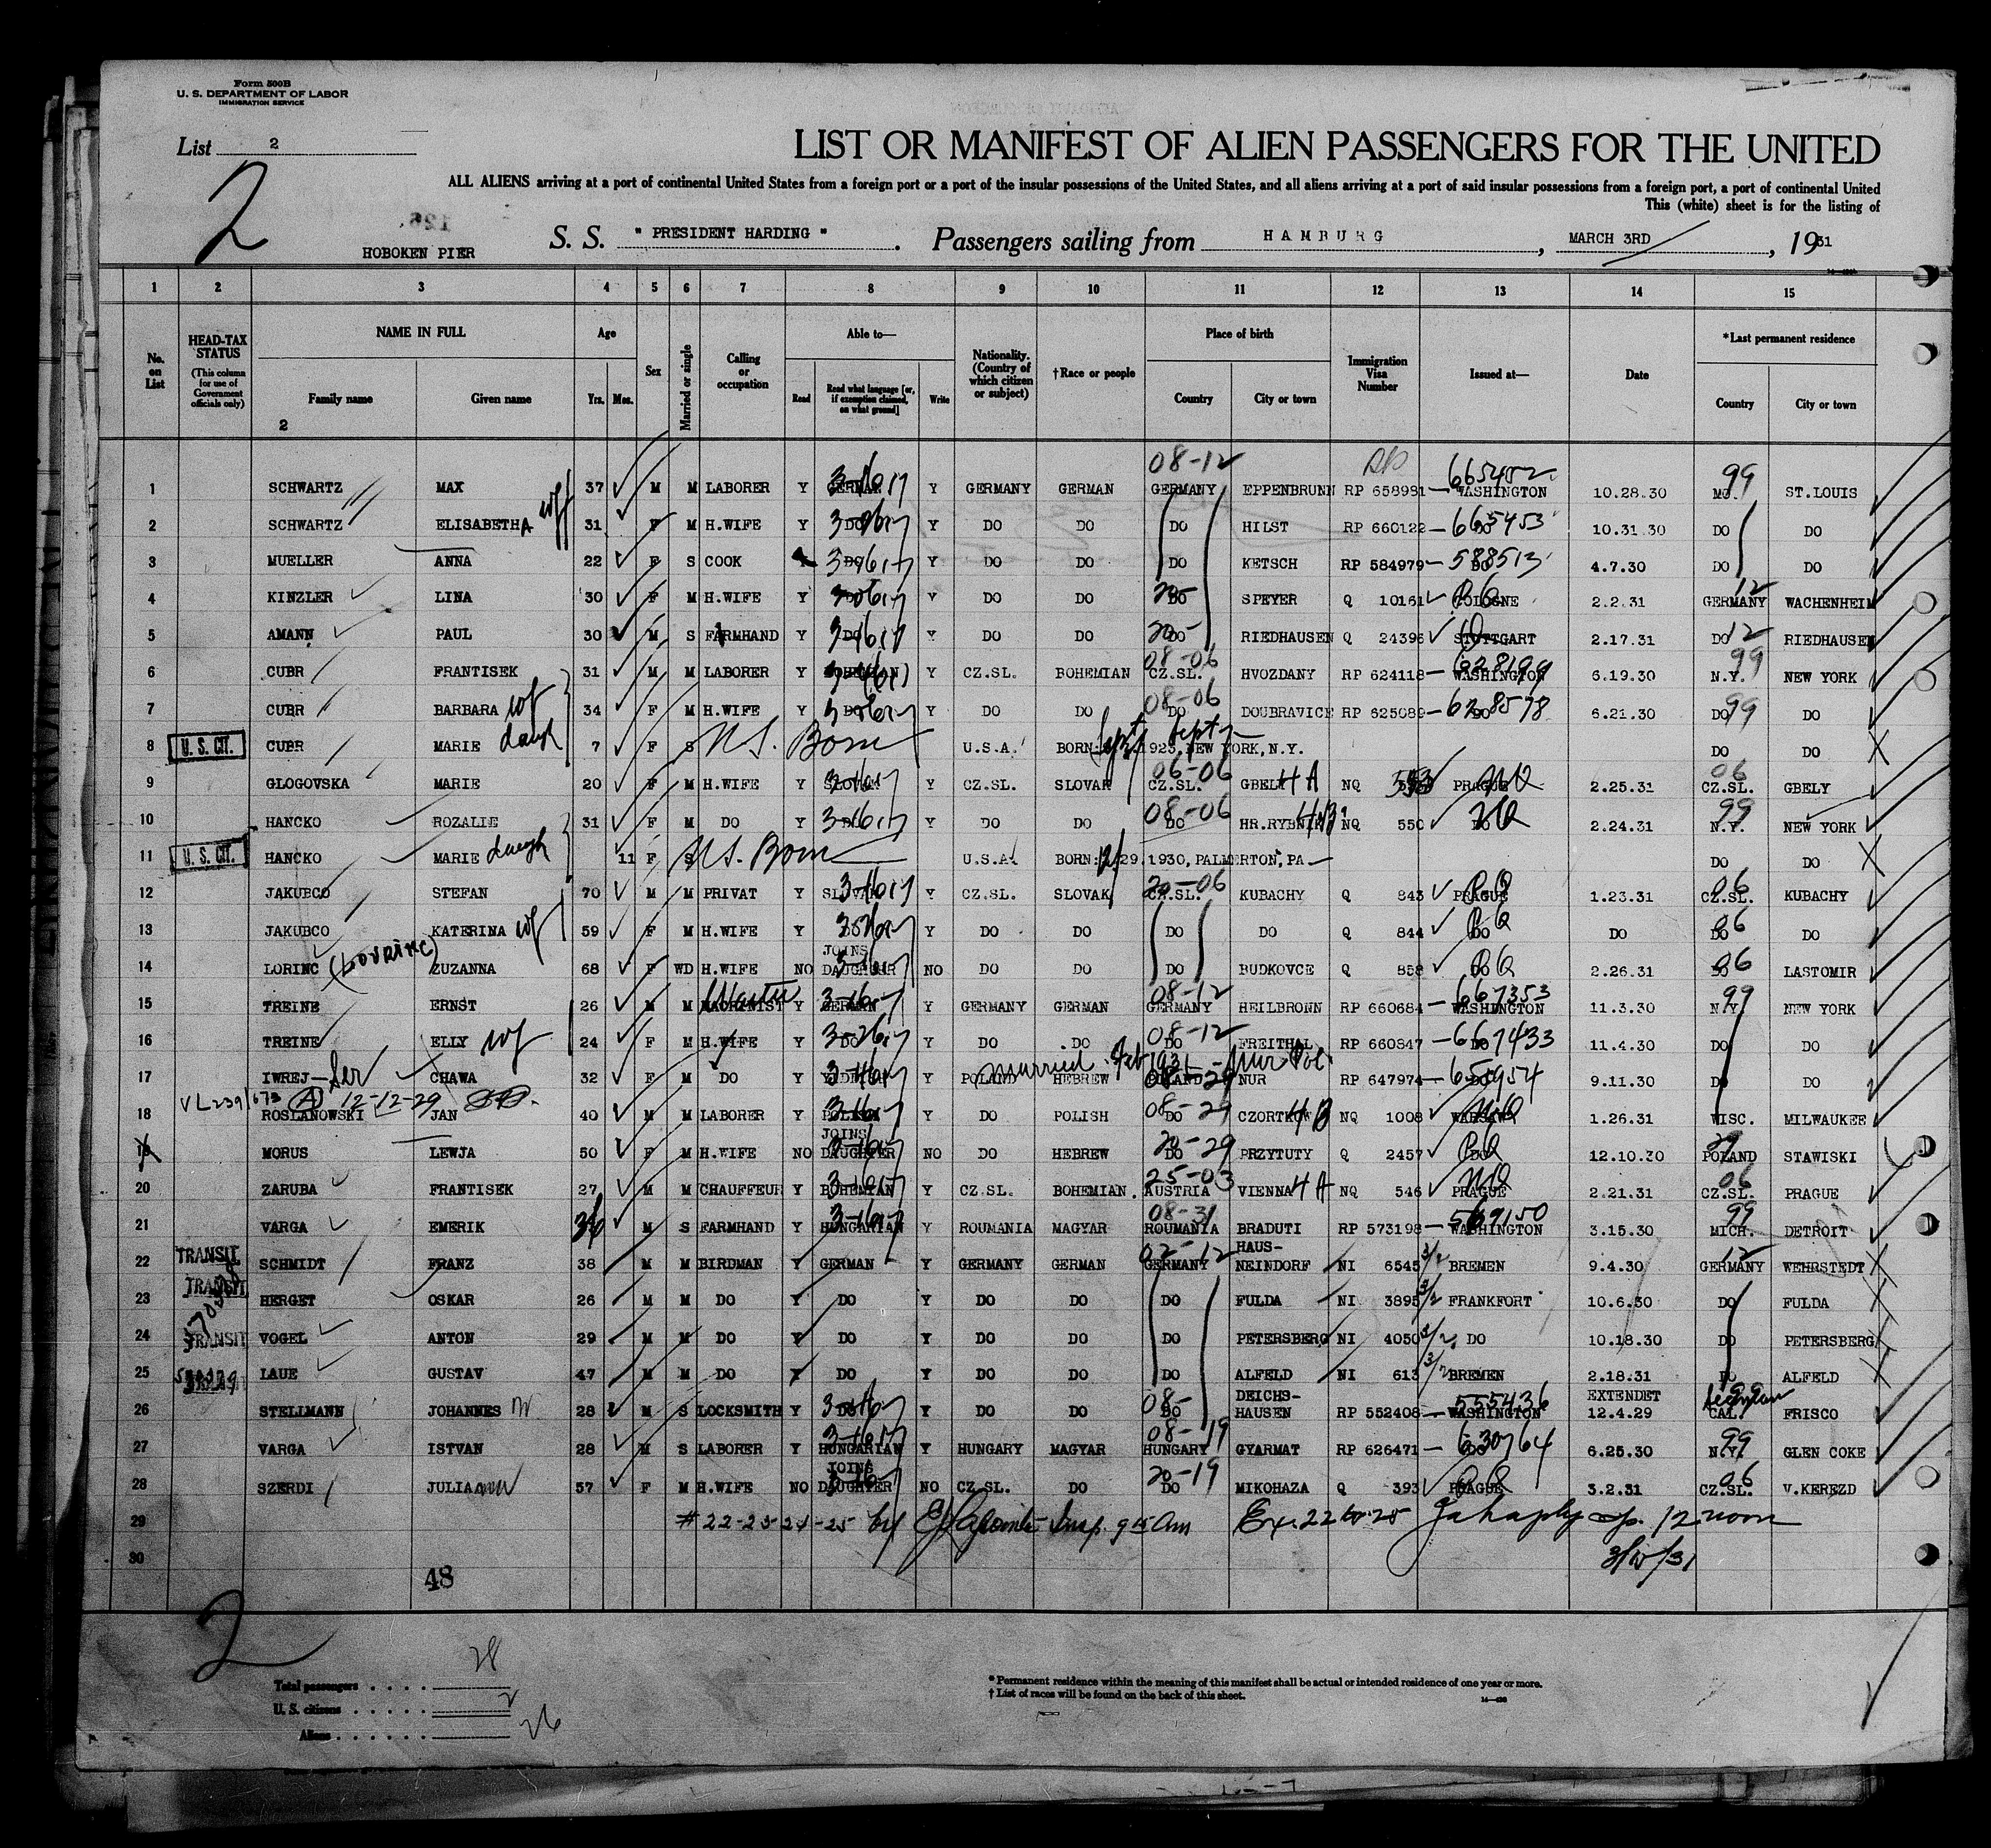 Form 500B
U. S. DEPARTMENT OF LABOR
IMMIGRATION SERVICE
List 2
LIST OR MANIFEST OF ALIEN PASSENGERS FOR THE UNITED
ALL ALIENS arriving at a port of continental United States from a foreign port or a port of the insular possessions of the United States, and all aliens arriving at a port of said insular possessions from a foreign port, a port of continental United
This (white) sheet is for the listing of
2
HOBOKEN PIER S. S. " PRESIDENT HARDING " . Passengers sailing from HAMBURG , MARCH 3RD , 1931
1 2 3 4 5 6 7 8 9 10 11 12 13 14 15
No. on List
HEAD-TAX STATUS
(This column for use of Government officials only)
NAME IN FULL
Family name
Given name
2
Age
Yrs. Mos.
Sex
Married or single
Calling or occupation
Able to—
Read
Read what language [or, if exemption claimed, on what ground]
Write
Nationality. (Country of which citizen or subject)
†Race or people
Place of birth
Country
City or town
Immigration Visa Number
Issued at—
Date
*Last permanent residence
Country
City or town
08-12 665452 99
1 SCHWARTZ MAX 37 M M LABORER Y GERMAN Y GERMANY GERMAN GERMANY EPPENBRUNN RP 658981 WASHINGTON 10.28.30 MO. ST.LOUIS
2 SCHWARTZ ELISABETHA wf 31 F M H.WIFE Y DO Y DO DO DO HILST RP 660122 — 665453 DO 10.31.30 DO DO
3 MUELLER ANNA 22 F S COOK DO Y DO DO DO KETSCH RP 584979 — 588513 DO 4.7.30 DO DO
4 KINZLER LINA 30 F M H.WIFE Y DO Y DO DO DO SPEYER Q 10161 COLOGNE 2.2.31 GERMANY 12 WACHENHEIM
5 AMANN PAUL 30 M S FARMHAND Y DO Y DO DO DO RIEDHAUSEN Q 24396 STUTTGART 2.17.31 DO 12 RIEDHAUSEN
08-06 628199 99
6 CUBR FRANTISEK 31 M M LABORER Y BOHEMIAN Y CZ.SL. BOHEMIAN CZ.SL. HVOZDANY RP 624118 WASHINGTON 6.19.30 N.Y. NEW YORK
08-06
7 CUBR BARBARA wf 34 F M H.WIFE Y DO Y DO DO DO DOUBRAVICE RP 625089 — 628578 DO 6.21.30 DO 99 DO
8 U. S. CIT. CUBR MARIE daugh 7 F S U.S. Born U.S.A. BORN: 1923, NEW YORK, N.Y. DO DO
06-06 06
9 GLOGOVSKA MARIE 20 F M H.WIFE Y SLOVAK Y CZ.SL. SLOVAK CZ.SL. GBELY NQ PRAGUE 2.25.31 CZ.SL. GBELY
08-06 99
10 HANCKO ROZALIE 31 F M DO Y Y DO DO DO HR.RYBNIK NQ 550 DO 2.24.31 N.Y. NEW YORK
11 U. S. CIT. HANCKO MARIE daugh 11 F S U.S. Born U.S.A. BORN: 29, 1930, PALMERTON, PA DO DO
20-06 06
12 JAKUBCO STEFAN 70 M M PRIVAT Y SLOVAK Y CZ.SL. SLOVAK CZ.SL. KUBACHY Q 843 PRAGUE 1.23.31 CZ.SL. KUBACHY
13 JAKUBCO KATERINA wf 59 F M H.WIFE Y Y DO DO DO DO Q 844 DO DO DO 06 DO
JOINS
14 LORINC (LOVRINC) ZUZANNA 68 F WD H.WIFE NO DAUGHTER NO DO DO DO BUDKOVCE Q 858 DO 2.26.31 06 LASTOMIR
08-12 667353 99
15 TREINE ERNST 26 M M MACHINIST Y GERMAN Y GERMANY GERMAN GERMANY HEILBRONN RP 660684 WASHINGTON 11.3.30 N.Y. NEW YORK
08-12
16 TREINE ELLY wf 24 F M H.WIFE Y DO Y DO DO DO FREITHAL RP 660847 — 667433 DO 11.4.30 DO DO
married Feb 1931
17 IWREJ — Ser CHAWA 32 F M DO Y YIDDISH Y POLAND HEBREW POLAND NUR RP 647974 — 655954 9.11.30 DO DO
VL239/673 (A) 12-12-29
18 ROSLANOWSKI JAN 40 M M LABORER Y POLISH Y DO POLISH DO 08-29 CZORTKOW NQ 1008 WARSAW 1.26.31 WISC. MILWAUKEE
JOINS 20-29
19 MORUS LEWJA 50 F M H.WIFE NO DAUGHTER NO DO HEBREW DO PRZYTUTY Q 2457 DO 12.10.30 POLAND STAWISKI
25-03 06
20 ZARUBA FRANTISEK 27 M M CHAUFFEUR Y BOHEMIAN Y CZ.SL. BOHEMIAN AUSTRIA VIENNA 4 A NQ 546 PRAGUE 2.21.31 CZ.SL. PRAGUE
08-31 569150 99
21 VARGA EMERIK 36 M S FARMHAND Y HUNGARIAN Y ROUMANIA MAGYAR ROUMANIA BRADUTI RP 573198 WASHINGTON 3.15.30 MICH. DETROIT
TRANSIT 02-12 HAUS- 12
22 SCHMIDT FRANZ 38 M M BIRDMAN Y GERMAN Y GERMANY GERMAN GERMANY NEINDORF NI 6545 BREMEN 9.4.30 GERMANY WEHRSTEDT
TRANSIT
23 HERGET OSKAR 26 M M DO Y DO Y DO DO DO FULDA NI 3895 FRANKFORT 10.6.30 DO FULDA
24 TRANSIT VOGEL ANTON 29 M M DO Y DO Y DO DO DO PETERSBERG NI 4050 DO 10.18.30 DO PETERSBERG
25 LAUE GUSTAV 47 M M DO Y DO Y DO DO DO ALFELD NI 613 BREMEN 2.18.31 DO ALFELD
DEICHS- 555436 EXTENDET
26 STELLMANN JOHANNES 28 M S LOCKSMITH Y DO Y DO DO DO HAUSEN RP 552408 WASHINGTON 12.4.29 CAL. FRISCO
08-19 99
27 VARGA ISTVAN 28 M S LABORER Y HUNGARIAN Y HUNGARY MAGYAR HUNGARY GYARMAT RP 626471 — 630764 6.25.30 N.Y. GLEN COKE
JOINS 20-19 06
28 SZERDI JULIANNA 57 F M H.WIFE NO DAUGHTER NO CZ.SL. DO DO MIKOHAZA Q 393 PRAGUE 3.2.31 CZ.SL. V.KEREZD
29 # 22-23-24-25 by Insp. 9 15 am Ex. 22 to 25 12 noon
30 3/15/31
48
2
Total passengers . . . . 28
U. S. citizens . . . . . 2
Aliens . . . . . . 26
* Permanent residence within the meaning of this manifest shall be actual or intended residence of one year or more.
† List of races will be found on the back of this sheet.